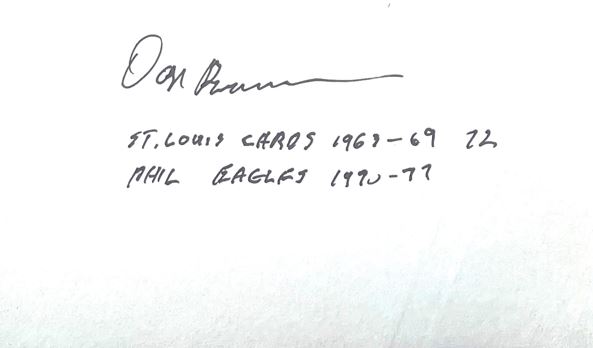 Don Brumm
ST. LOUIS CARDS 1963-69 72
PHIL EAGLES 1970-71